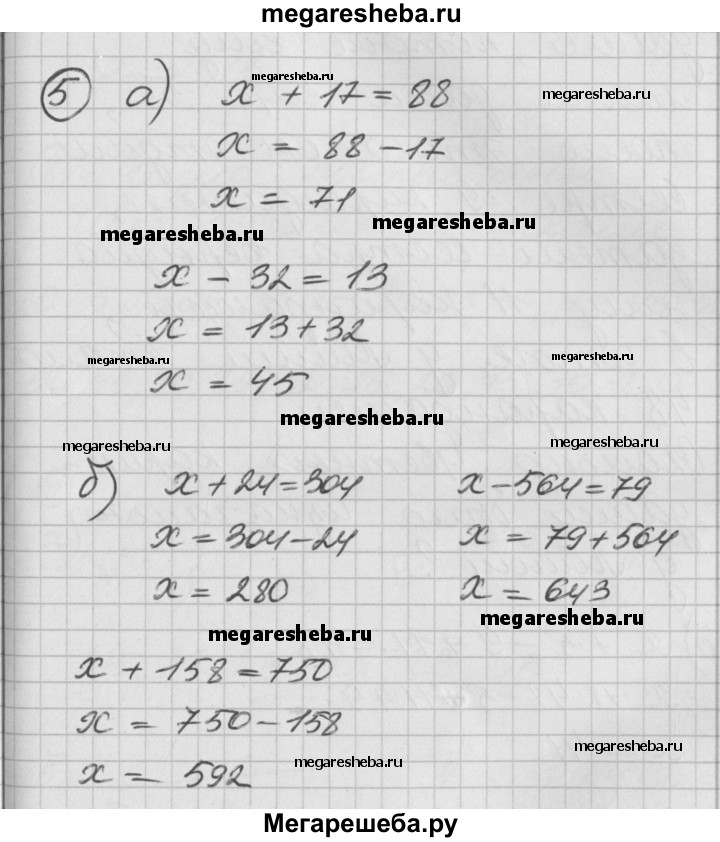 megaresheba.ru
5 а) x + 17 = 88
megaresheba.ru
megaresheba.ru
x = 88 - 17
x = 71
megaresheba.ru
megaresheba.ru
x - 32 = 13
x = 13 + 32
megaresheba.ru
megaresheba.ru
x = 45
megaresheba.ru
megaresheba.ru
megaresheba.ru
б) x + 24 = 304
x = 304 - 24
x = 280
x - 564 = 79
x = 79 + 564
x = 643
megaresheba.ru
megaresheba.ru
x + 158 = 750
x = 750 - 158
x = 592
megaresheba.ru
megaresheba.ru
Мегарешеба.ру